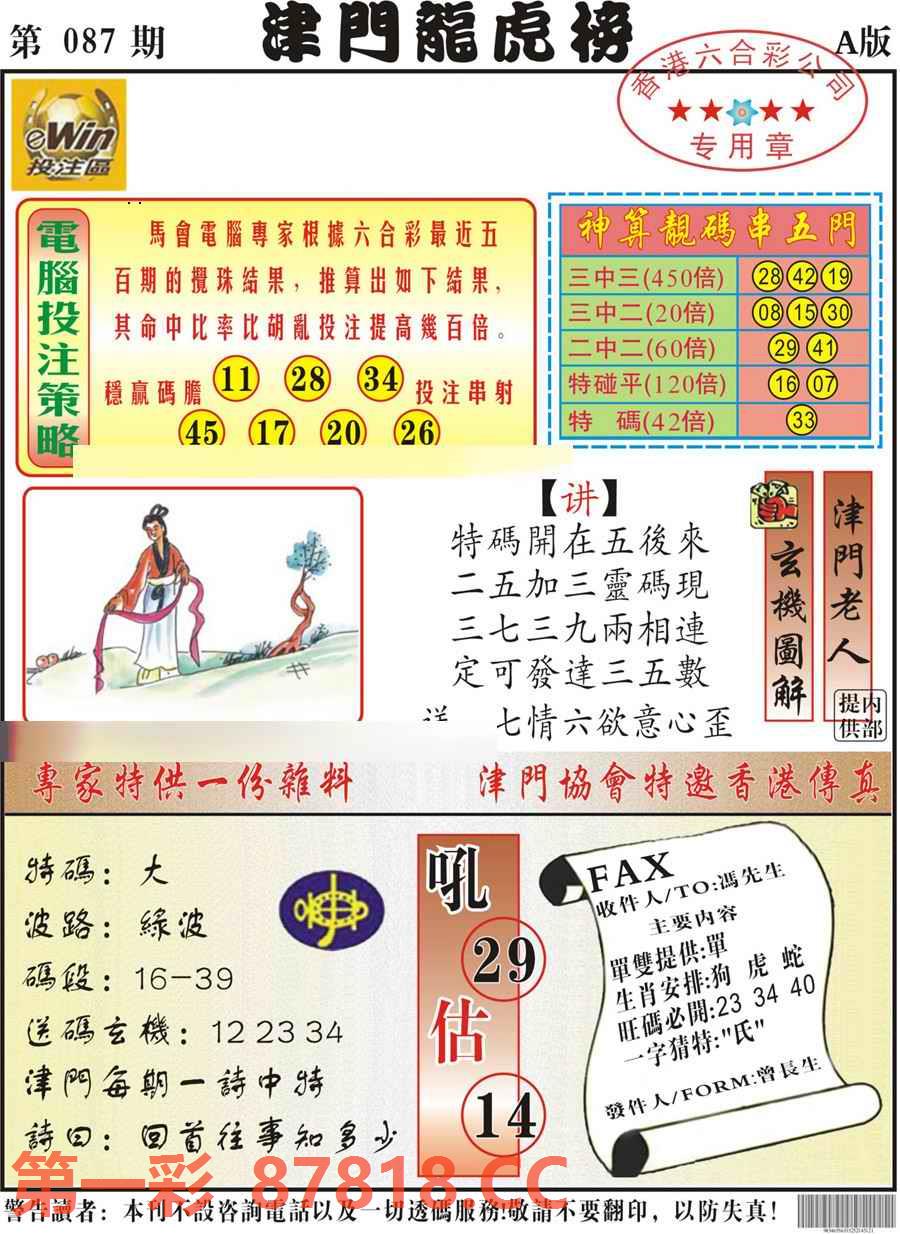 第 087 期
津門龍虎榜
A版
香港六合彩公司
专用章
eWin
投注區
電腦投注策略
馬會電腦專家根據六合彩最近五
百期的攪珠結果，推算出如下結果，
其命中比率比胡亂投注提高幾百倍。
穩贏碼膽 11 28 34 投注串射
45 17 20 26
神算靚碼串五門
三中三(450倍) 28 42 19
三中二(20倍) 08 15 30
二中二(60倍) 29 41
特碰平(120倍) 16 07
特 碼(42倍) 33
【讲】
特碼開在五後來
二五加三靈碼現
三七三九兩相連
定可發達三五數
七情六欲意心歪
玄機圖解
津門老人
内部提供
專家特供一份雜料
津門協會特邀香港傳真
特碼：大
波路：綠波
碼段：16-39
送碼玄機：12 23 34
津門每期一詩中特
詩曰：回首往事知多少
吼
29
估
14
FAX
收件人/TO:馮先生
主要内容
單雙提供:單
生肖安排:狗 虎 蛇
旺碼必開:23 34 40
一字猜特:"氏"
發件人/FORM:曾長生
第一彩 87818.CC
警告讀者：本刊不設咨詢電話以及一切透碼服務!敬請不要翻印，以防失真!